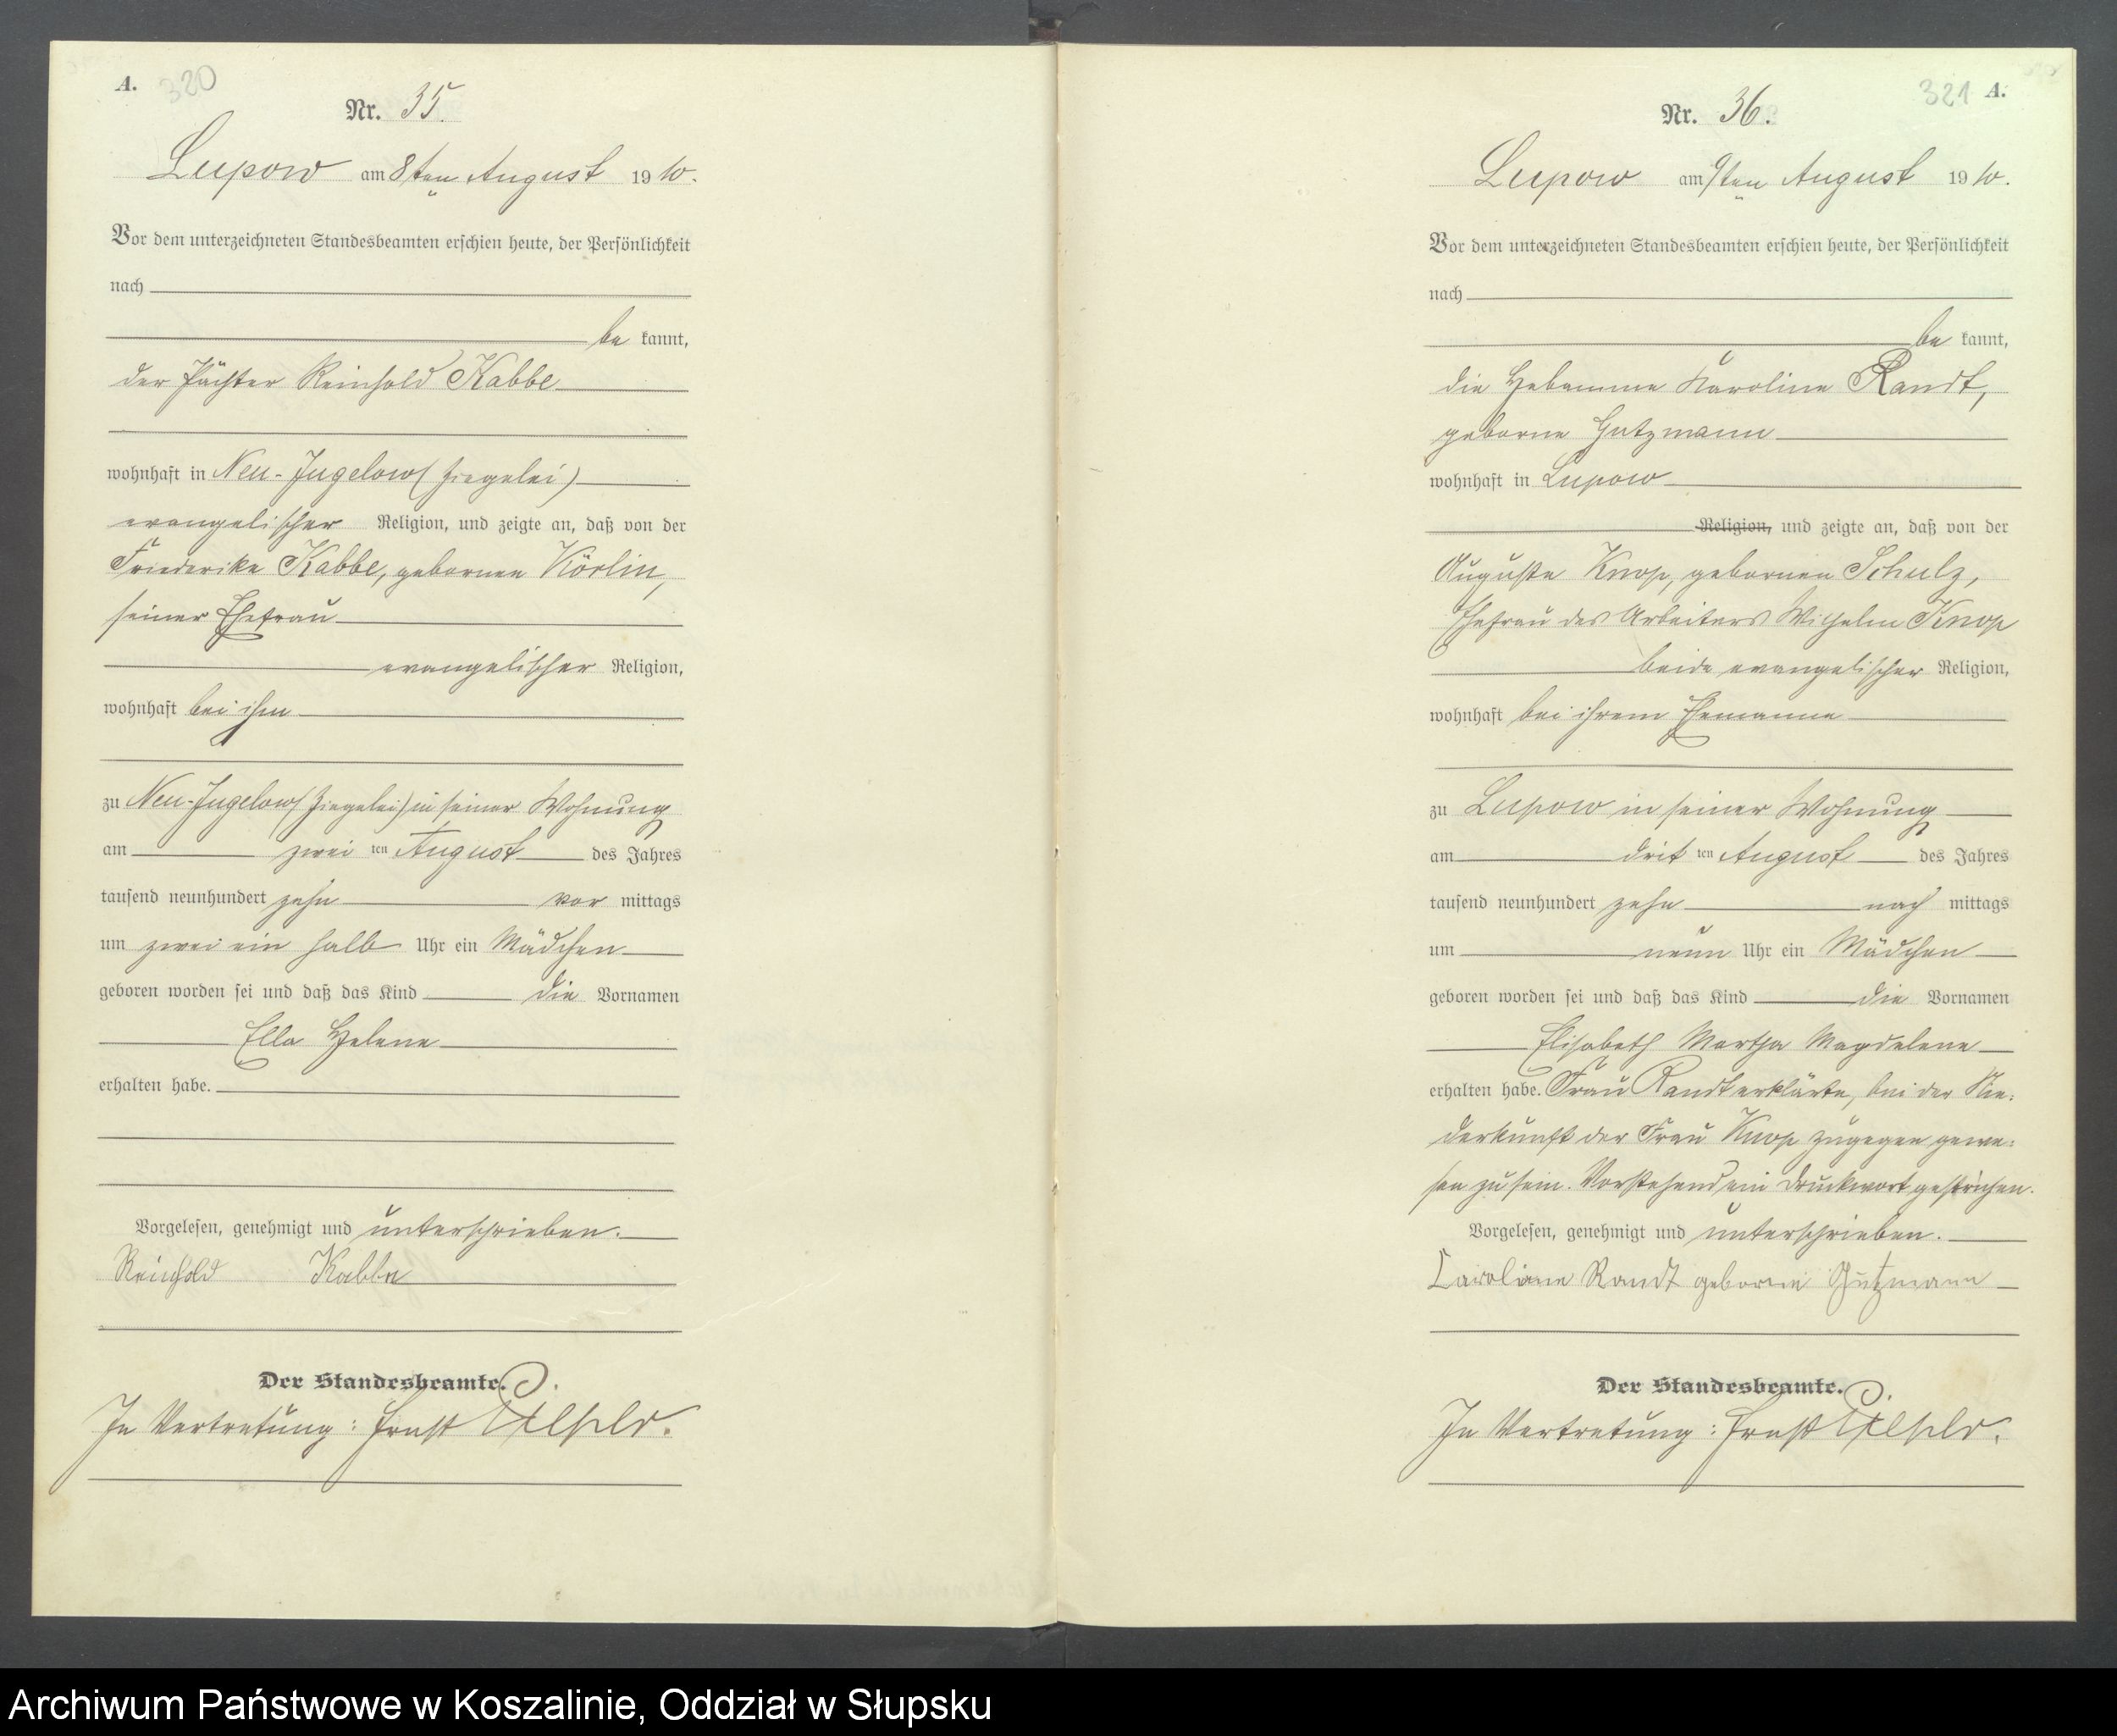 A. 320
Nr. 35.
Lupow am 8ten August 1910.
Vor dem unterzeichneten Standesbeamten erschien heute, der Persönlichkeit
nach
be kannt,
der Pächter Reinhold Kabbe
wohnhaft in Neu-Jugelow (Ziegelei)
evangelischer Religion, und zeigte an, daß von der
Friederike Kabbe, gebornen Körlin,
seiner Ehefrau
evangelischer Religion,
wohnhaft bei ihm
zu Neu-Jugelow (Ziegelei) in seiner Wohnung
am zwei ten August des Jahres
tausend neunhundert zehn vor mittags
um zwei ein halb Uhr ein Mädchen
geboren worden sei und daß das Kind die Vornamen
Ella Helene
erhalten habe.
Vorgelesen, genehmigt und unterschrieben.
Reinhold Kabbe
Der Standesbeamte.
In Vertretung: Ernst
321 A.
Nr. 36.
Lupow am 9ten August 1910.
Vor dem unterzeichneten Standesbeamten erschien heute, der Persönlichkeit
nach
be kannt,
die Hebamme Karoline Randt,
geborne Gutzmann
wohnhaft in Lupow
Religion, und zeigte an, daß von der
Auguste Knop, gebornen Schulz,
Ehefrau des Arbeiters Wilhelm Knop
beide evangelischer Religion,
wohnhaft bei ihrem Ehemanne
zu Lupow in seiner Wohnung
am drit ten August des Jahres
tausend neunhundert zehn nach mittags
um neun Uhr ein Mädchen
geboren worden sei und daß das Kind die Vornamen
Elisabeth Martha Magdalene
erhalten habe. Frau Randt erklärte, bei der Nie-
derkunft der Frau Knop zugegen gewe-
sen zu sein. Vorstehend ein Druckwort gestrichen.
Vorgelesen, genehmigt und unterschrieben.
Caroline Randt geborne Gutzmann
Der Standesbeamte.
In Vertretung: Ernst
Archiwum Państwowe w Koszalinie, Oddział w Słupsku